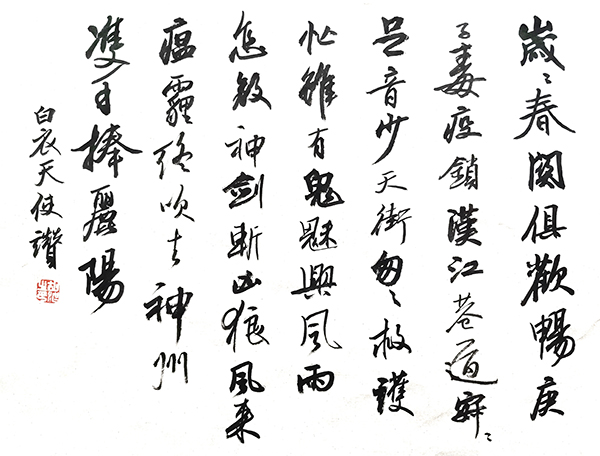 歲々春闌俱歡暢庚
子毒疫鎖漢江巷道寂々
足音少天街匆々救護
忙雖有鬼魅興風雨
怎敵神劍斬凶狼風来
瘟霾終吹去神州
雙手捧麗陽
白衣天使讚